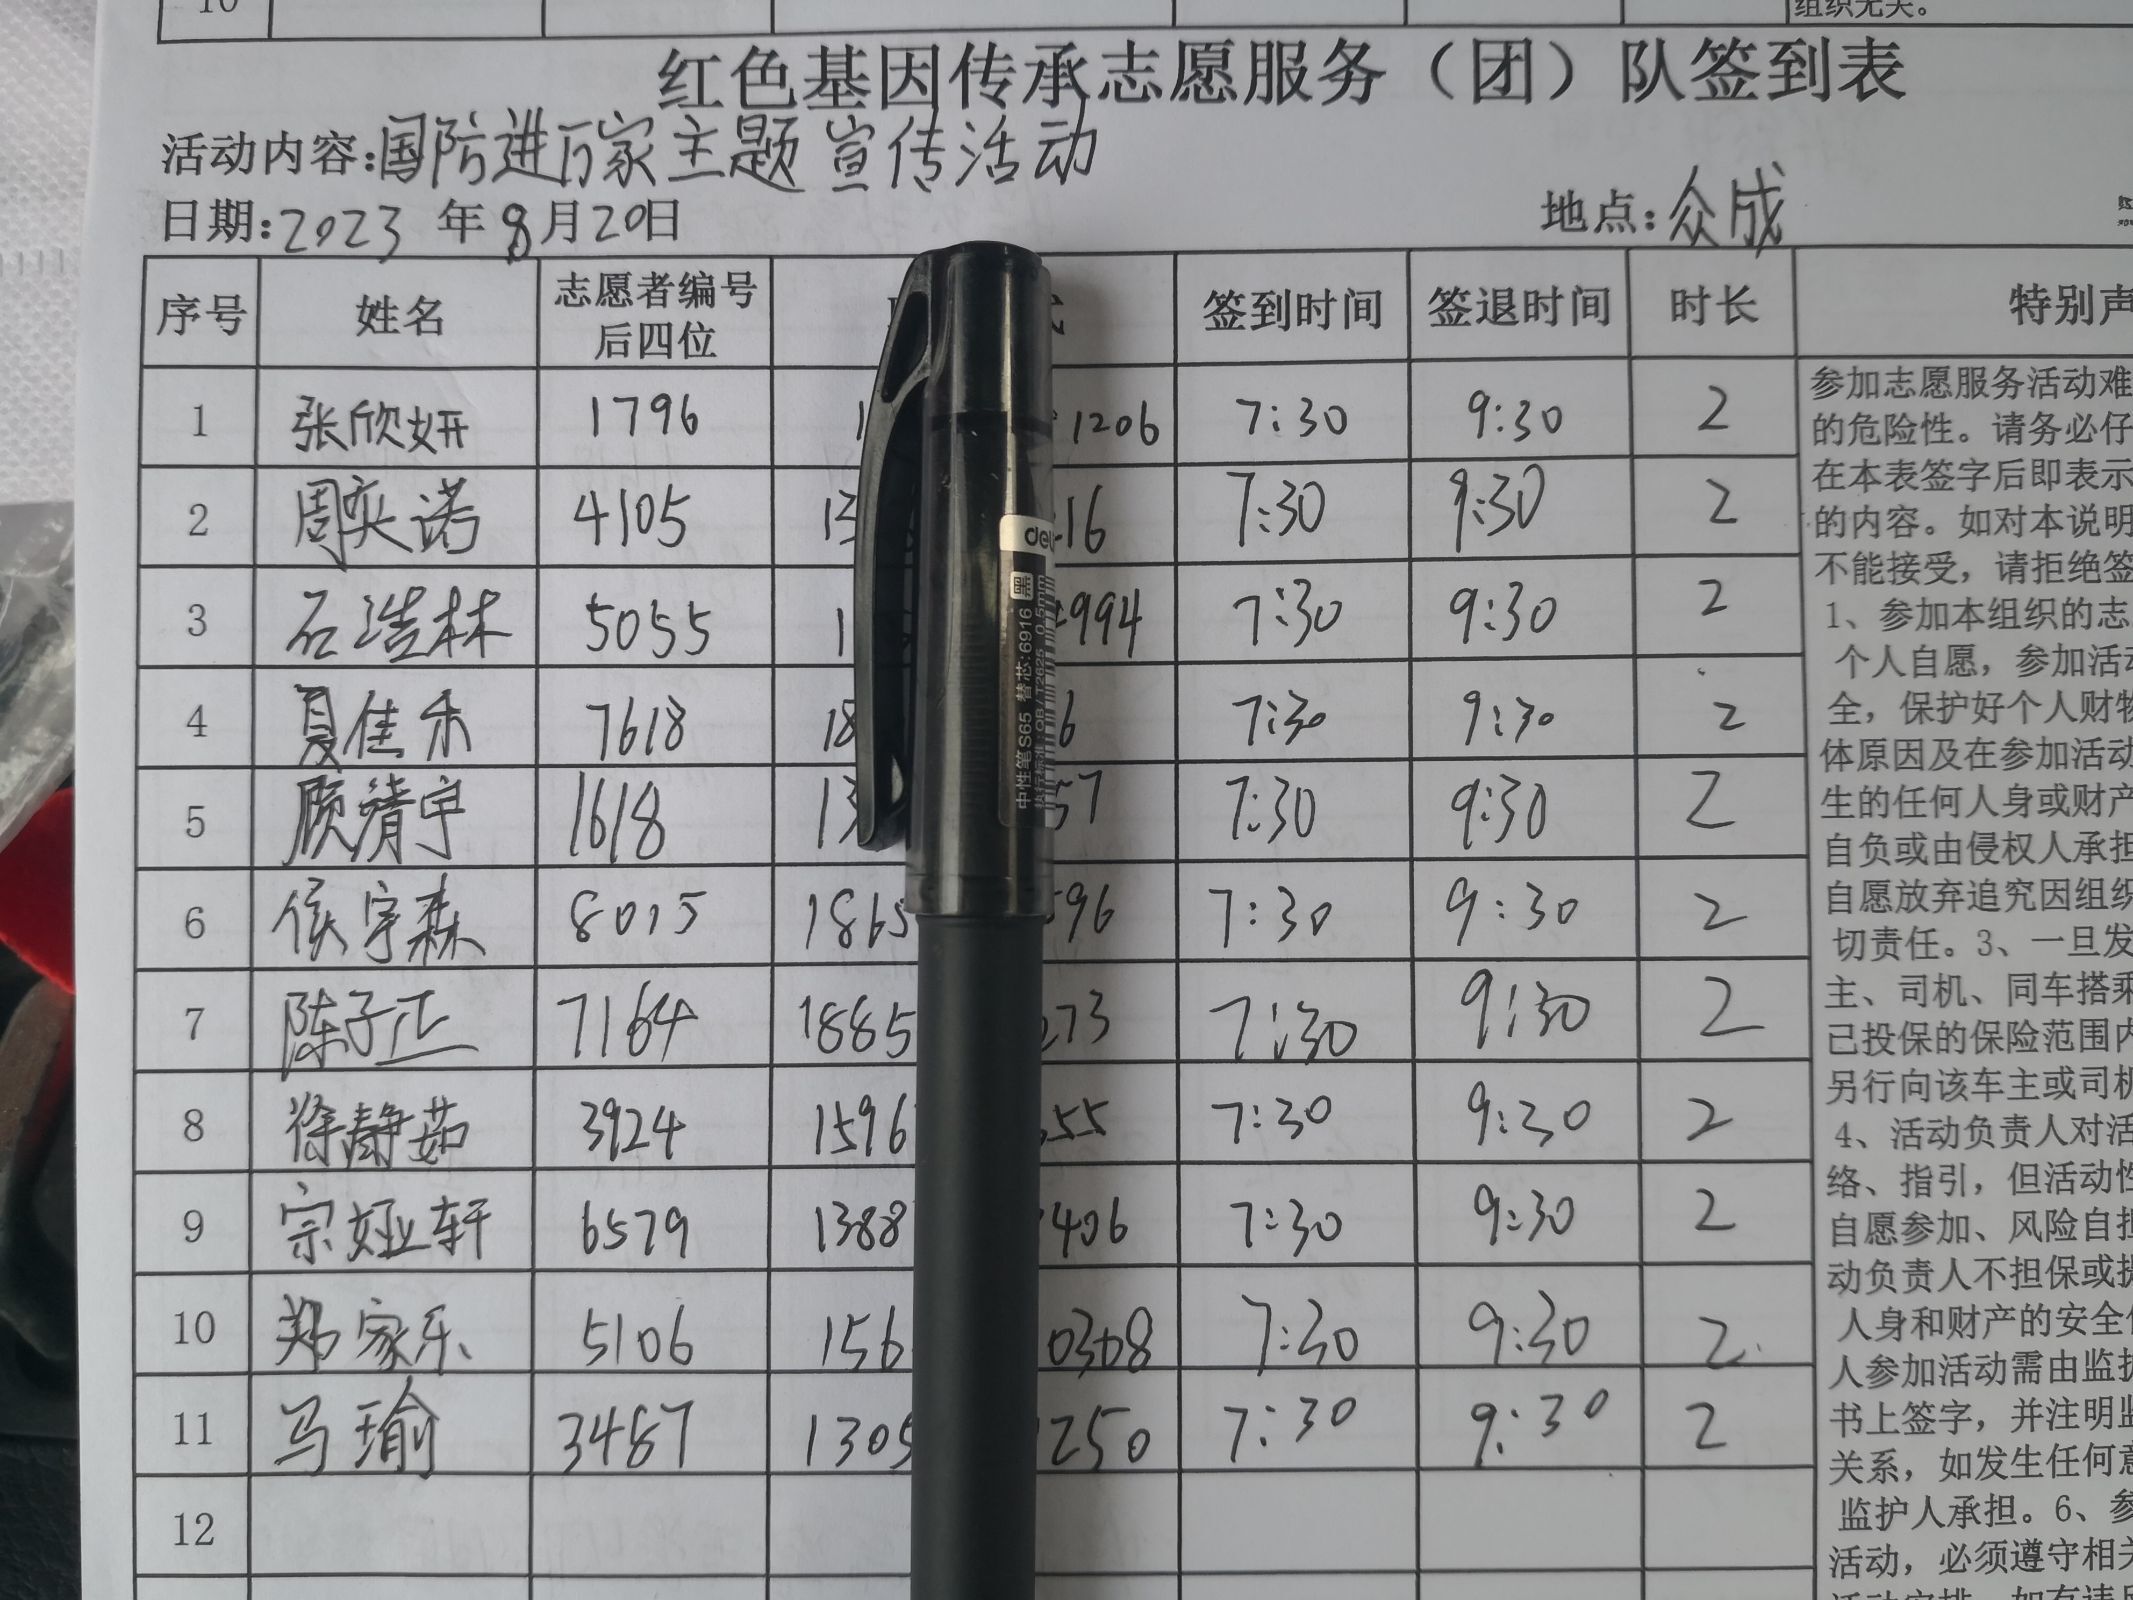 10
组织无关。
红色基因传承志愿服务（团）队签到表
活动内容:国防进万家主题宣传活动
日期:2023 年 8月20日 地点:众成
序号 姓名 志愿者编号后四位 签到时间 签退时间 时长 特别声
1 张欣妍 1796 1 1206 7:30 9:30 2
2 周奕诺 4105 13 16 7:30 9:30 2
3 石浩林 5055 1 994 7:30 9:30 2
4 夏佳禾 7618 18 6 7:30 9:30 2
5 顾婧宇 1618 13 57 7:30 9:30 2
6 侯宇森 8015 1865 596 7:30 9:30 2
7 陈子正 7164 1885 273 7:30 9:30 2
8 徐静茹 3924 1596 55 7:30 9:30 2
9 宗娅轩 6579 1388 406 7:30 9:30 2
10 郑家乐 5106 156 0308 7:30 9:30 2
11 马瑜 3487 1305 250 7:30 9:30 2
12
参加志愿服务活动难
的危险性。请务必仔
在本表签字后即表示
的内容。如对本说明
不能接受，请拒绝签
1、参加本组织的志
个人自愿，参加活动
全，保护好个人财物
体原因及在参加活动
生的任何人身或财产
自负或由侵权人承担
自愿放弃追究因组织
切责任。3、一旦发
主、司机、同车搭乘
已投保的保险范围内
另行向该车主或司机
4、活动负责人对活
络、指引，但活动性
自愿参加、风险自担
动负责人不担保或
人身和财产的安全
人参加活动需由监护
书上签字，并注明监
关系，如发生任何意
监护人承担。6、参
活动，必须遵守相关
deli
黑
中性笔S65 替芯:6916
执行标准:QB/T2625 0.5mm